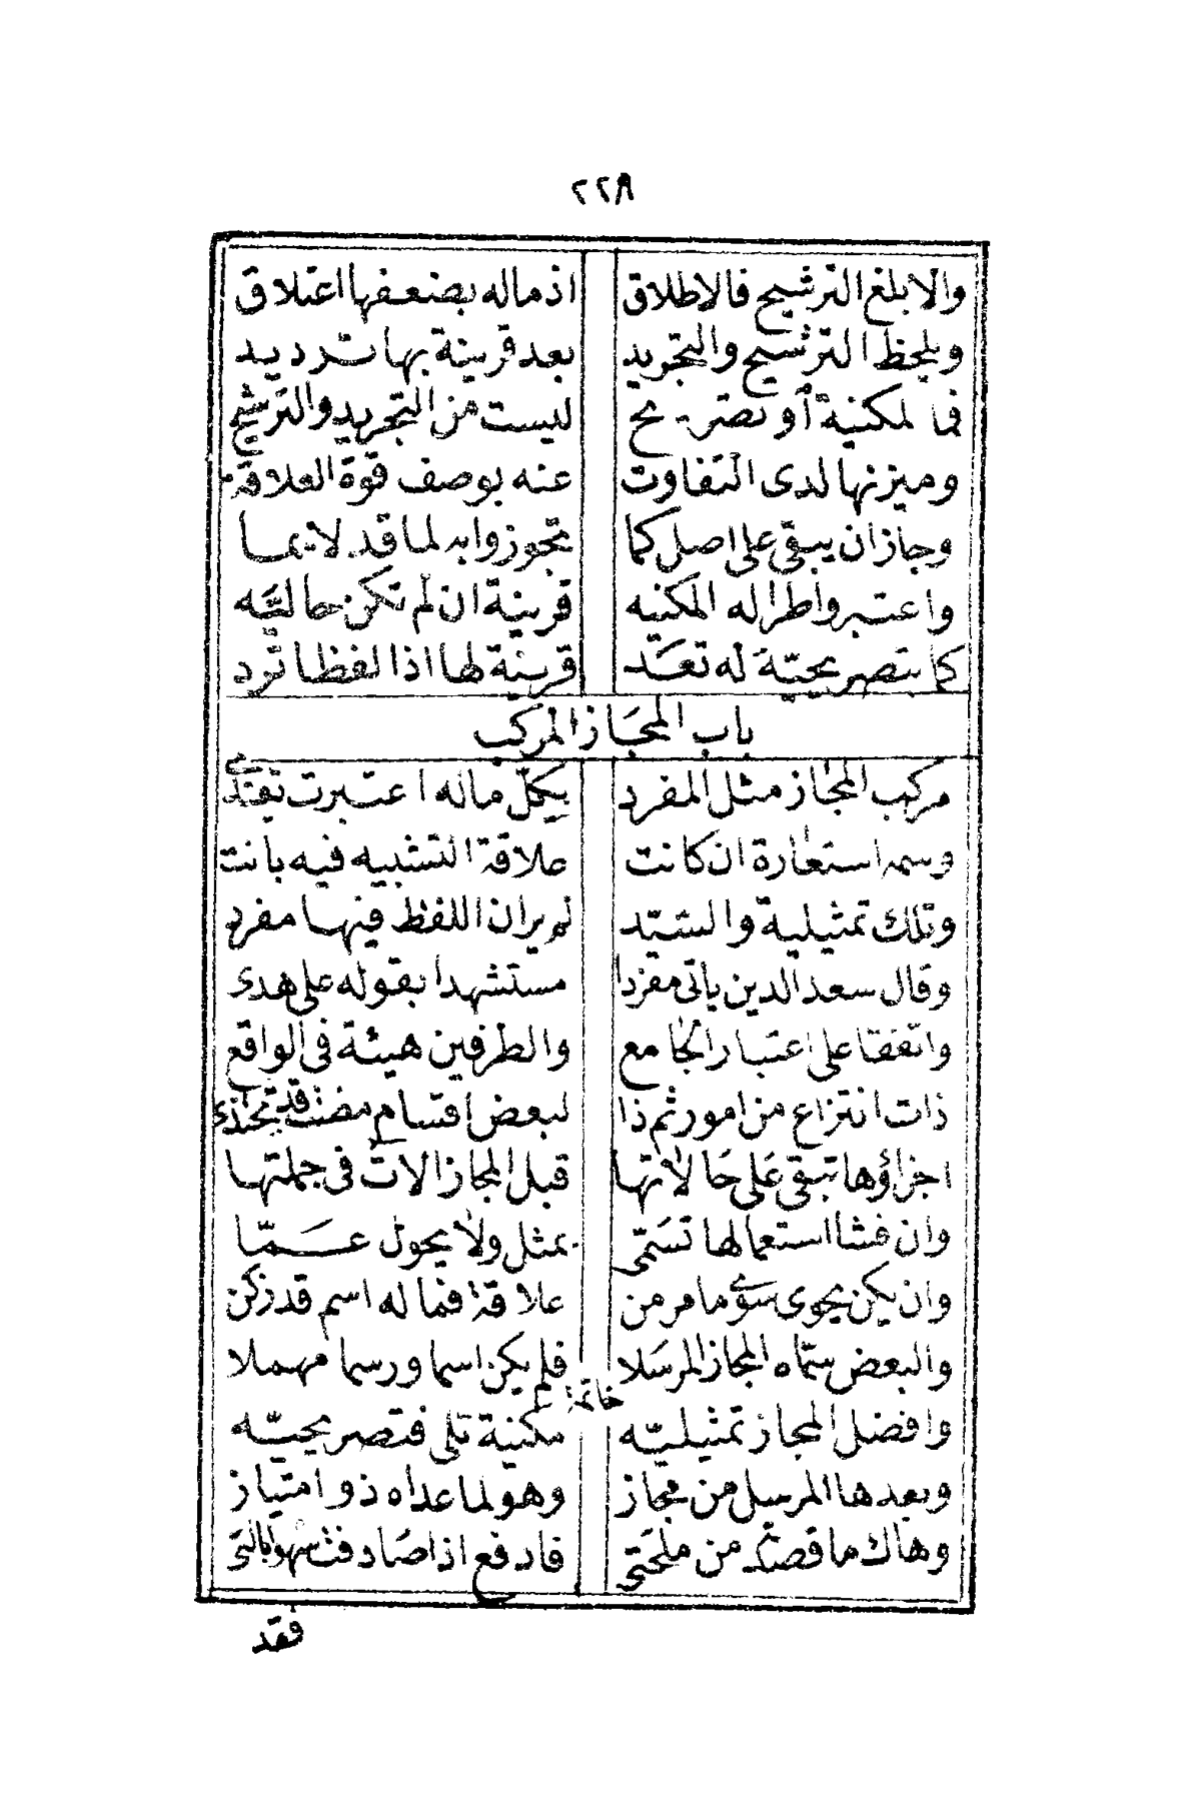 ٢٢٩
والابلغ الترشيح فالاطلاق اذ ماله بضعفها اعتلاق
ويلحظ الترشيح والتجريد بعد قرينة بها ترديد
فما لمكنية أو تصريح ليست من التجريد والترشيح
وميزنها لدى التفاوت عنه بوصف قوة العلاقة
وجاز ان يبقى على اصل كما تجوزوا به لما قد لايما
واعتبروا طرا له المكنيه قرينة ان لم تكن حاليّه
كما بتصريحيّة له تعد قرينة لها اذا لفظا ترد
باب المجاز المركب
مركب المجاز مثل المفرد بكل ماله اعتبرت تقتدى
وسمه استعارة ان كانت علاقة التشبيه فيه بانت
وتلك تمثيلية والسيّد لم يران اللفظ فيها مفرد
وقال سعد الدين ياتى مفردا مستشهدا بقوله على هدى
واتفقا على اعتبار الجامع والطرفين هيئة فى الواقع
ذات انتزاع من امور ثم ذا لبعض اقسام مضت قد تحتذى
اجزاؤها تبقى على حالاتها قبل المجاز الات فى جملتها
وان فشا استعمالها تسمّى بمثل ولا يحول عمّا
وان يكن يحوى سوى ما مر من علاقة فما له اسم قد زكن
والبعض سمّاه المجاز المرسلا فلم يكن اسما ورسما مهملا
خاتمة
وافضل المجاز تمثيليّه مكنية تلى فتصريحيّه
وبعدها المرسل من مجاز وهو لما عداه ذو امتياز
وهاك ما قصدت من ملحتى فادفع اذا صادفت سهوا بالتى
فقد